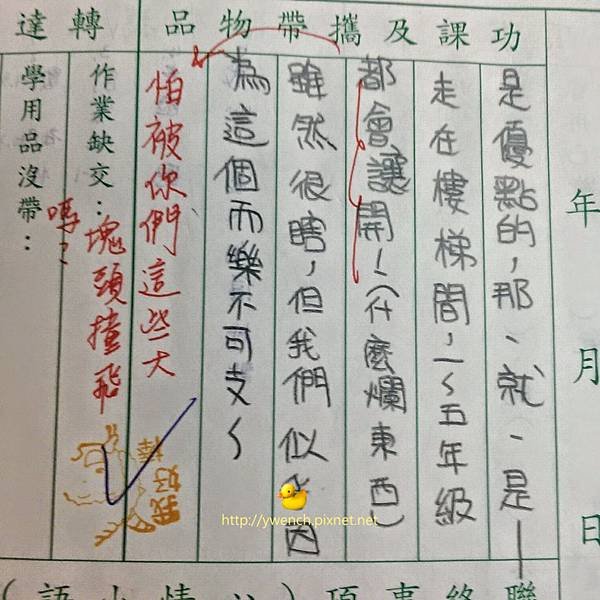 功課及攜帶物品
轉達
年月日
是優點的,那、就、是—
走在樓梯間,一~五年級
都會讓開!(什麼爛東西)
雖然很瞎,但我們似乎因
為這個而樂不可支~
怕被你們這些大
塊頭撞飛
嗎?
作業缺交:
學用品沒帶:
我好棒
http://ywench.pixnet.net